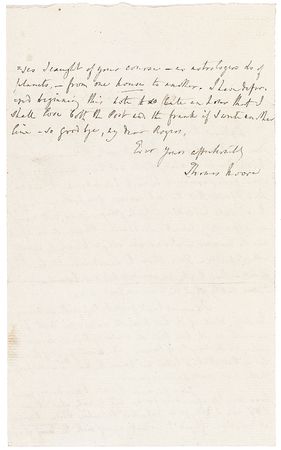 -ses I caught of your course – as astrologers do of
planets, – from one house to another. I have defer-
red beginning this note to so late an hour that I
shall lose both the Post and the frank if I write another
line – so good bye, my dear Rogers,
Ever yours affectionately
Thomas Moore